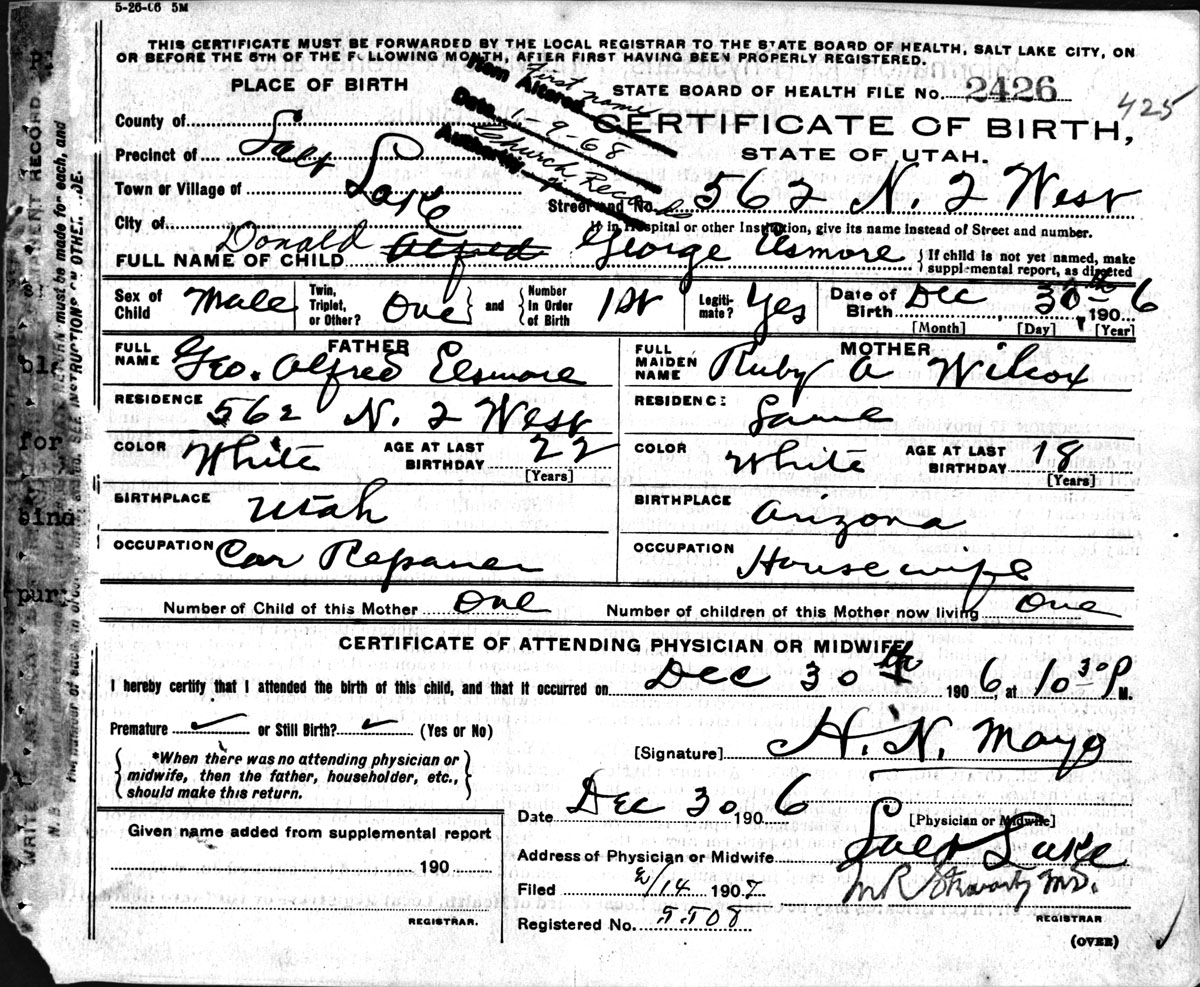 5-26-06 5M
THIS CERTIFICATE MUST BE FORWARDED BY THE LOCAL REGISTRAR TO THE STATE BOARD OF HEALTH, SALT LAKE CITY, ON
OR BEFORE THE 5TH OF THE FOLLOWING MONTH, AFTER FIRST HAVING BEEN PROPERLY REGISTERED.
PLACE OF BIRTH
STATE BOARD OF HEALTH FILE No. 2426
425
Item Altered First name
Date 6-9-68
Authority Church Records
CERTIFICATE OF BIRTH,
STATE OF UTAH.
County of
Precinct of Salt
Town or Village of Lake
City of
Street and No. 562 N. 2 West
If in Hospital or other Institution, give its name instead of Street and number.
FULL NAME OF CHILD Donald Alfred George Elsmore
If child is not yet named, make
supplemental report, as directed
Sex of Child Male
Twin, Triplet, or Other? One
and
Number In Order of Birth 1st
Legiti-mate? Yes
Date of Birth Dec 30th 1906
[Month] [Day] [Year]
FATHER
FULL NAME Geo. Alfred Elsmore
RESIDENCE 562 N. 2 West
COLOR White AGE AT LAST BIRTHDAY 22
[Years]
BIRTHPLACE Utah
OCCUPATION Car Repairer
MOTHER
FULL MAIDEN NAME Ruby A Wilcox
RESIDENCE Same
COLOR White AGE AT LAST BIRTHDAY 18
[Years]
BIRTHPLACE Arizona
OCCUPATION Housewife
Number of Child of this Mother One
Number of children of this Mother now living One
CERTIFICATE OF ATTENDING PHYSICIAN OR MIDWIFE
I hereby certify that I attended the birth of this child, and that it occurred on Dec 30th 1906, at 10 30 P M.
Premature ✓ or Still Birth? ✓ (Yes or No)
*When there was no attending physician or
midwife, then the father, householder, etc.,
should make this return.
[Signature] H. N. Mayo
Date Dec 30 1906
[Physician or Midwife]
Address of Physician or Midwife Salt Lake
Given name added from supplemental report
190
REGISTRAR.
Filed 2/14 1907
M.D.
REGISTRAR
Registered No. 5508
(OVER)